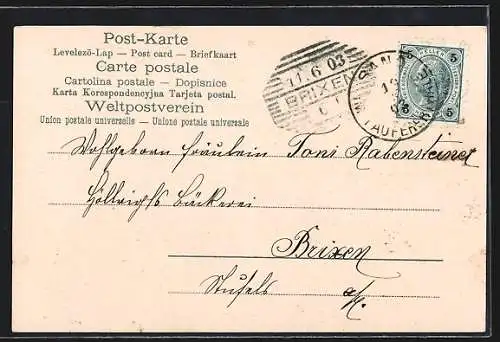 Post-Karte
Levelező-Lap — Post card — Briefkaart
Carte postale
Cartolina postale — Dopisnice
Karta Korespondencyjna Tarjeta postal.
Weltpostverein
Union postale universelle — Unione postale universale
11.6.03
BRIXEN
TAUFERS
5 5
Wohlgeborn Fräulein Toni Rabensteiner
Bäckerei
Brixen
Stufels a/E.